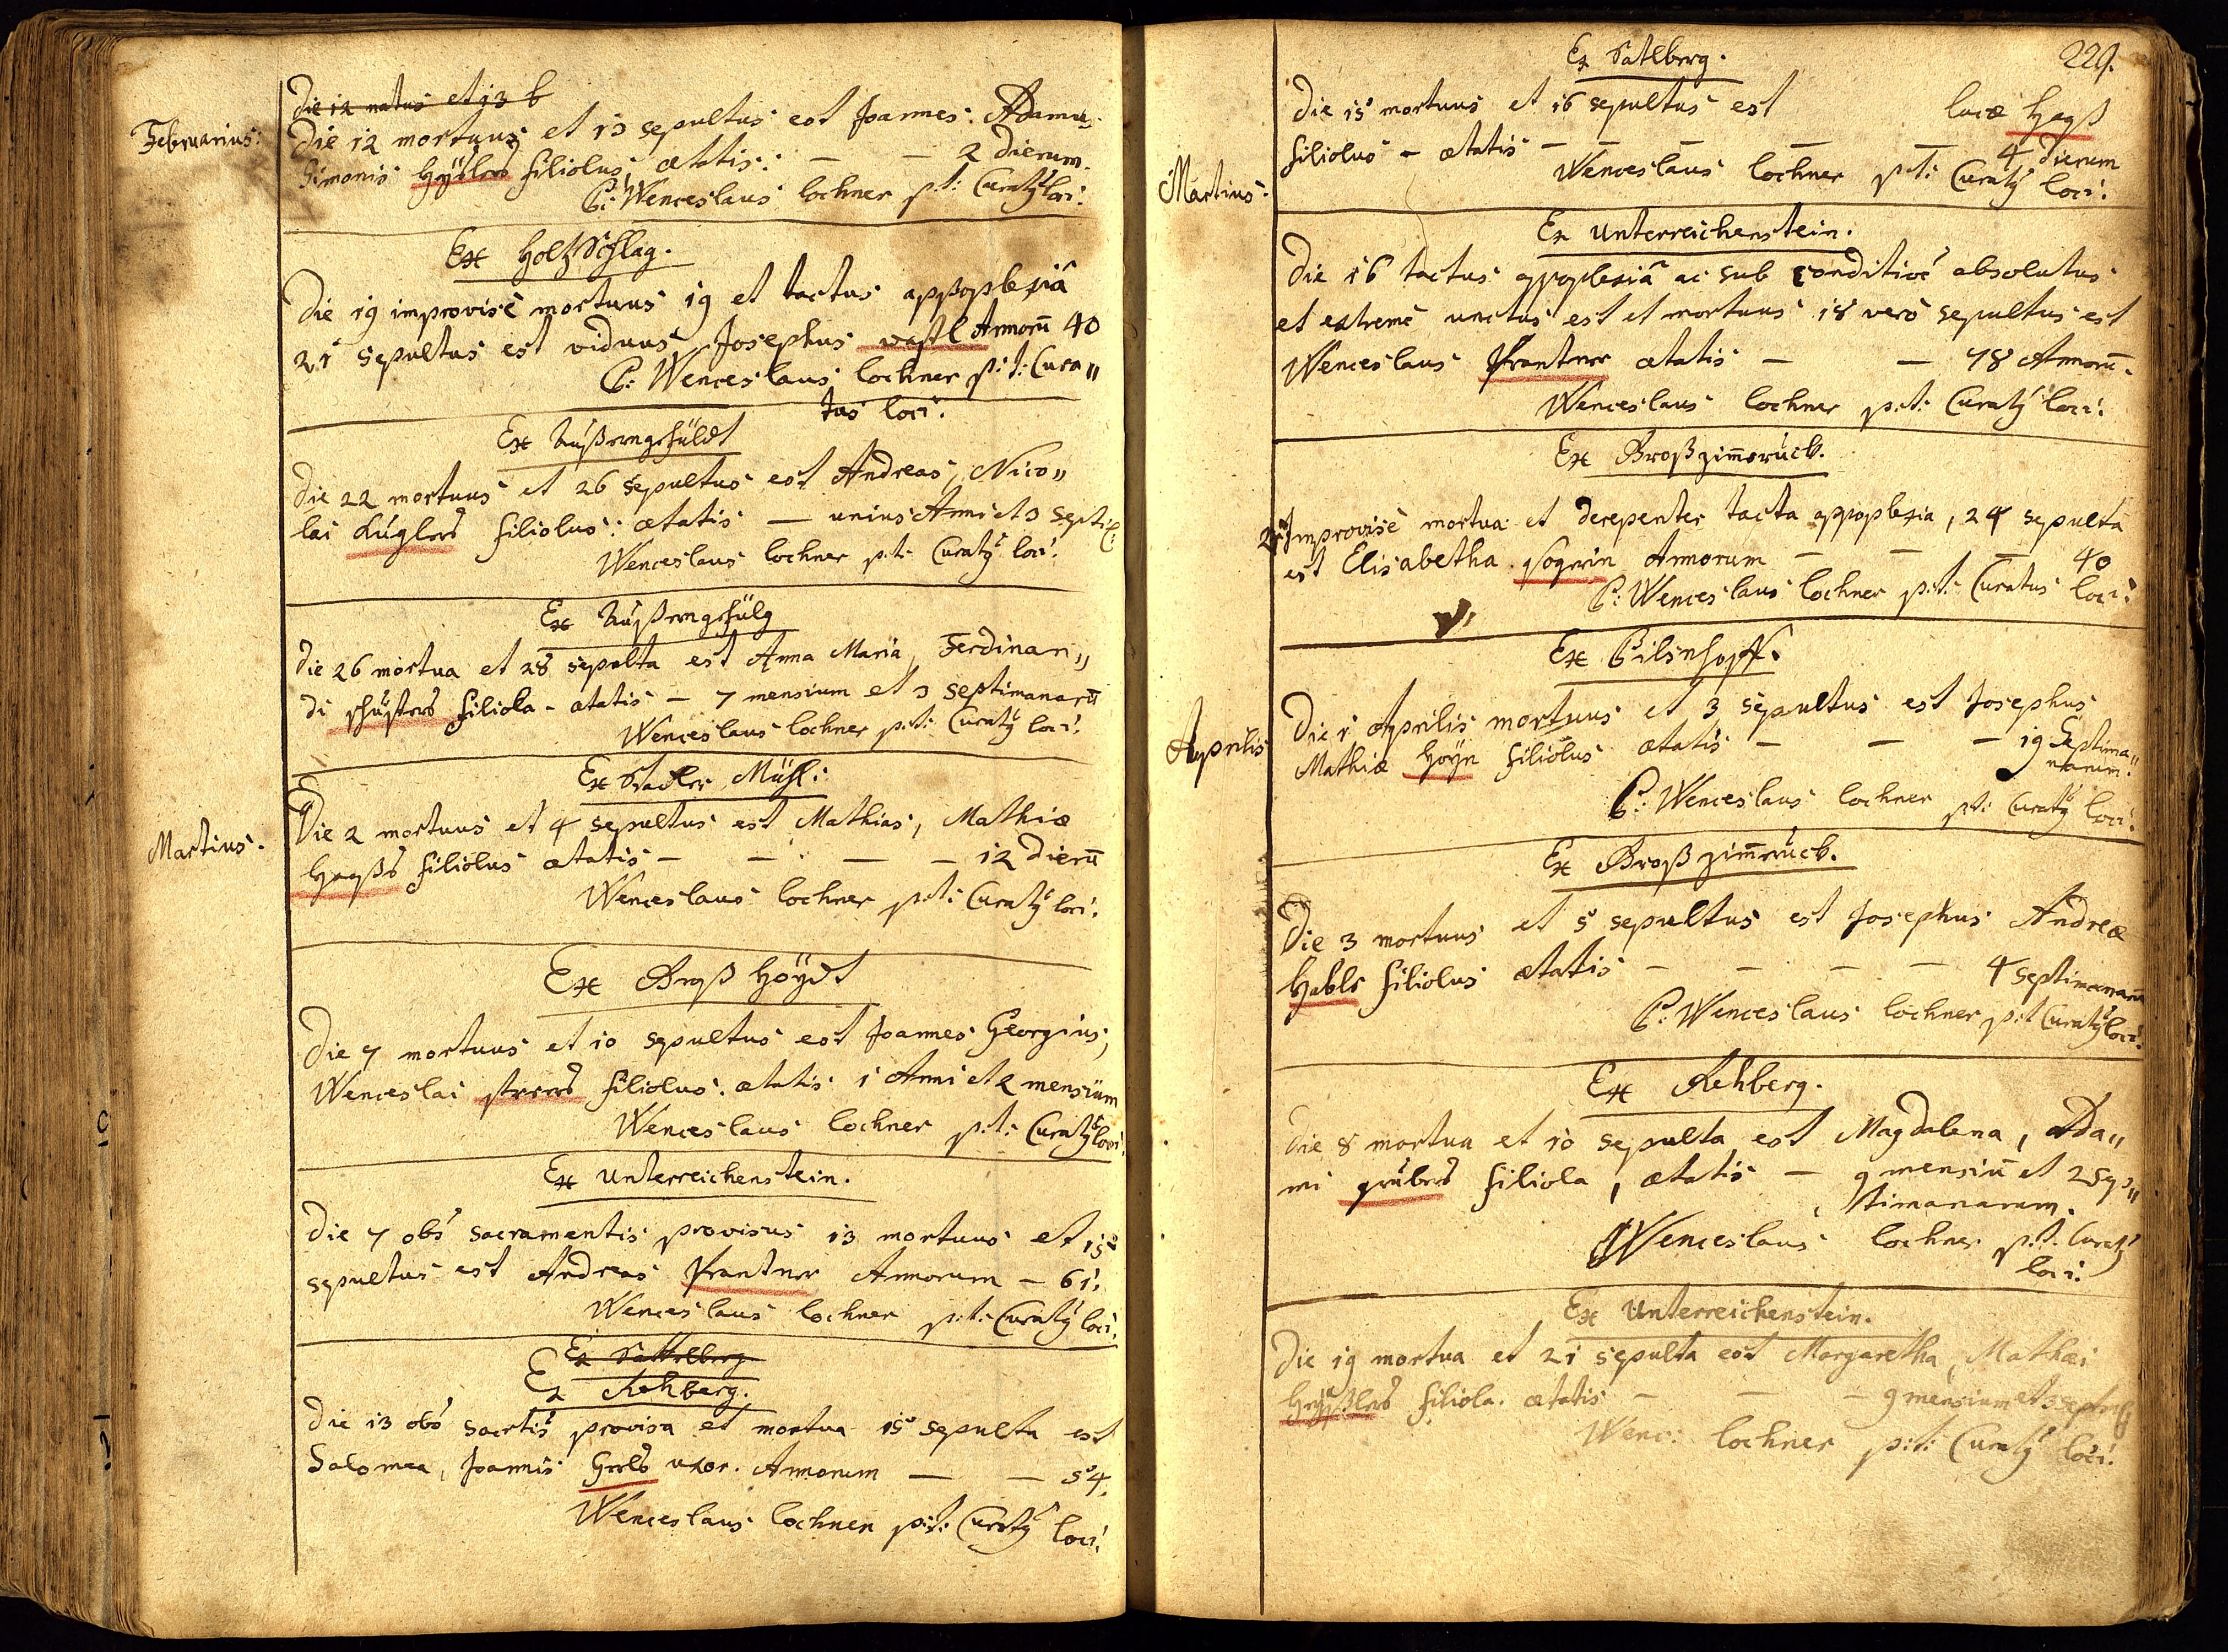 Februarius:
Die 12 natus et 13 b
Die 12 mortuus et 13 sepultus est Joannes Adamus
Simonis filiolus, ætatis: — — 2 Dierum.
P: Wenceslaus lochner p: t: Curatꝰ loci.
Ex Holtzschlag.
Die 19 improvisè mortuus 19 et tactus appoplexiâ
21 sepultus est viduus Josephus wastl Annorū 40
P: Wenceslaus lochner p: t: Cura„
tus loci.
Ex
Die 22 mortuus et 26 sepultus est Andreas, Nico„
lai Kuglers filiolus: ætatis — unius Anni et 3 septi
Wenceslaus lochner p: t: Curatꝰ loci.
Ex
Die 26 mortua et 28 sepulta est Anna Maria, Ferdinan„
di schusters filiola - ætatis — 7 mensium et 3 septimanarū
Wenceslaus lochner p: t: Curatꝰ loci.
Martius.
Ex Stadler Mühl:
Die 2 mortuus et 4 sepultus est Mathias, Mathiæ
filiolus ætatis — — — — 12 Dierū
Wenceslaus lochner p: t: Curatꝰ loci.
Ex Groß Höydt
Die 7 mortuus et 10 sepultus est Joannes Georgius,
Wenceslai filiolus. ætatis 1 Anni et 2 mensium
Wenceslaus lochner p: t: Curatꝰ loci.
Ex Unterreichenstein.
Die 7 obs sacramentis provisus 13 mortuus et 15
sepultus est Andreas Krantner Annorum — 61.
Wenceslaus lochner p: t: Curatꝰ loci.
Ex Sattelberg
Ex Rehberg.
Die 13 obs sacrtis provisa et mortua 15 sepulta est
Salomea, Joannis uxor. Annorum — — 54.
Wenceslaus lochner p: t: Curatꝰ loci.
229.
Martius.
Ex Satlberg.
Die 15 mortuus et 16 sepultus est lucæ
filiolus - ætatis — — — — — 4 Dierum
Wenceslaus lochner p: t: Curatꝰ loci.
Ex Unterreichenstein.
Die 16 tactus appoplexiâ ac sub conditioé absolutus
et extremè unctus est et mortuus 18 verò sepultus est
Wenceslaus Krantner ætatis — — 78 Annorū.
Wenceslaus lochner p: t: Curatꝰ loci.
Ex Großzim̄erück.
Improvisè mortua et derepenter tacta appoplexia, 24 sepulta
est Elisabetha Annorum — — — 40
P: Wenceslaus lochner p: t: Curatus loci.
Aprilis
Ex Pilsnhoff.
Die 1 Aprilis mortuus et 3 sepultus est Josephus
Mathiæ filiolus ætatis — — — 19 Septima„
narum.
P: Wenceslaus lochner p: t: Curatꝰ loci.
Ex Großzim̄erück.
Die 3 mortuus et 5 sepultus est Josephus Andreæ
filiolus ætatis — — — — 4 septimanarū
P: Wenceslaus lochner p: t: Curatꝰ loci.
Ex Rehberg.
Die 8 mortua et 10 sepulta est Magdalena, Ada„
mi grubers filiola, ætatis — 9 mensiū et 2 sep„
timanarum.
Wenceslaus lochner p: t: Curatꝰ
loci.
Ex Unterreichenstein.
Die 19 mortua et 21 sepulta est Margaretha, Mathæi
filiola. ætatis — — — 9 mensium et 3
Wenc: lochner p: t: Curatꝰ loci.